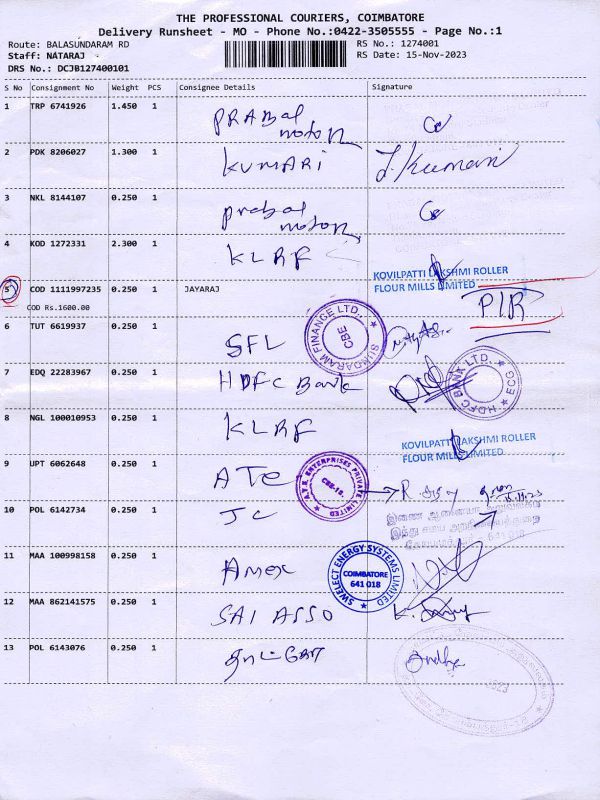 THE PROFESSIONAL COURIERS, COIMBATORE
Delivery Runsheet - MO - Phone No.:0422-3505555 - Page No.:1
Route: BALASUNDARAM RD
RS No.: 1274001
Staff: NATARAJ
RS Date: 15-Nov-2023
DRS No.: DCJB127400101
S No Consignment No Weight PCS Consignee Details Signature
1 TRP 6741926 1.450 1 PRABal motor
2 PDK 8206027 1.300 1 KUMARI J. Kumari
3 NKL 8144107 0.250 1 prabal motor
4 KOD 1272331 2.300 1 KLRF
KOVILPATTI LAKSHMI ROLLER
FLOUR MILLS LIMITED
5 COD 1111997235 0.250 1 JAYARAJ
COD Rs.1600.00
SUNDARAM FINANCE LTD. CBE
6 TUT 6619937 0.250 1 SFL
7 EDQ 22283967 0.250 1 HDFC Bank
HDFC BANK LTD.
8 NGL 100010953 0.250 1 KLRF
KOVILPATTI LAKSHMI ROLLER
FLOUR MILLS LIMITED
9 UPT 6062648 0.250 1 ATE
ENTERPRISES PRIVATE LIMITED
10 POL 6142734 0.250 1 JC
641 018
11 MAA 100998158 0.250 1 Amex
SWELECT ENERGY SYSTEMS LIMITED
COIMBATORE
641 018
12 MAA 862141575 0.250 1 SAI ASSO
13 POL 6143076 0.250 1